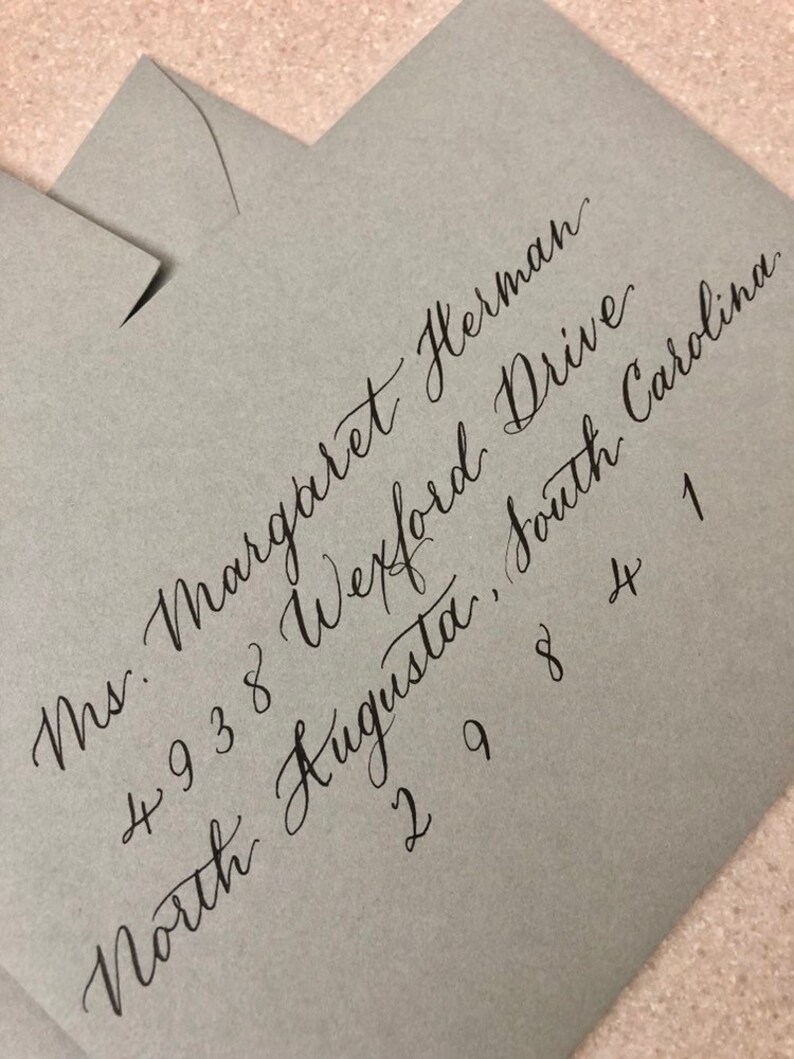 Ms. Margaret Herman
4938 Wexford Drive
North Augusta, South Carolina
29841